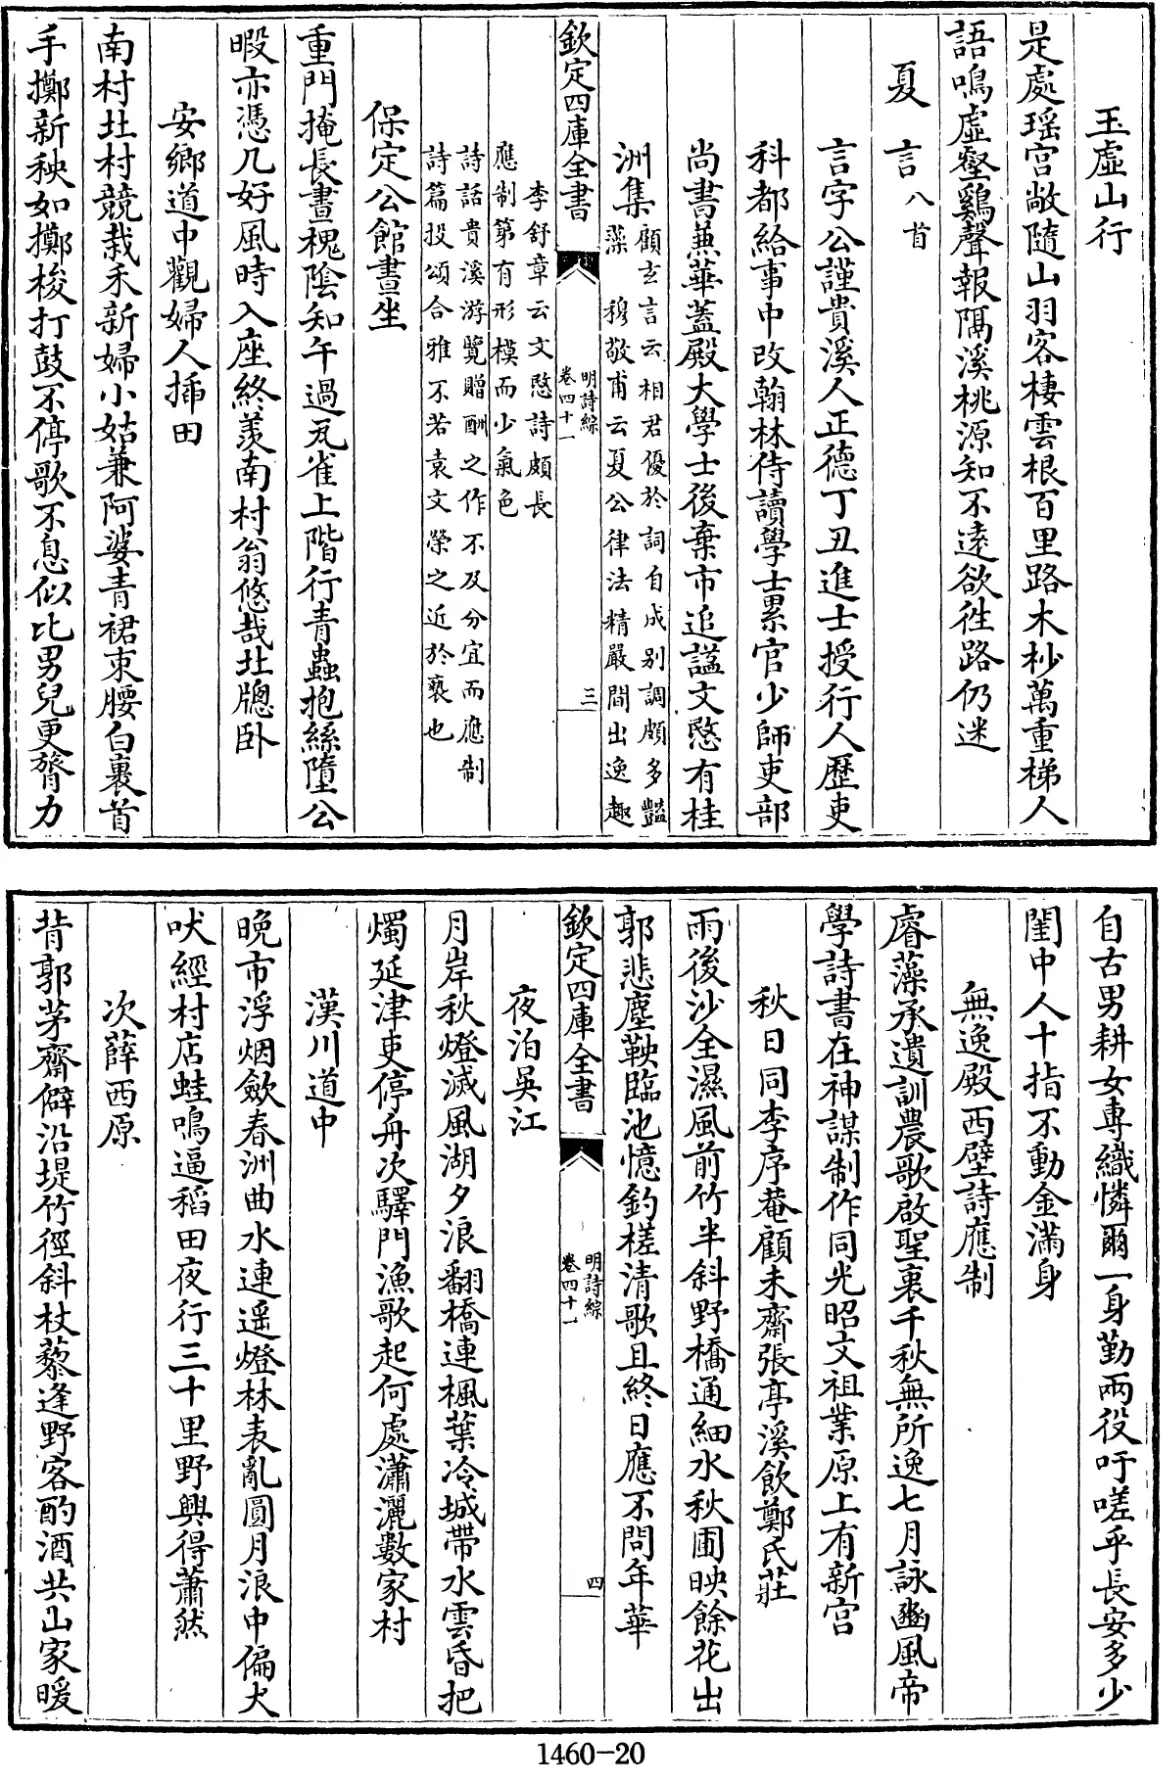 玉虛山行
是處瑤宫敞隨山羽客棲雲根百里路木杪萬重梯人
語鳴虛壑鷄聲報隔溪桃源知不逺欲徃路仍迷
夏言八首
言字公謹貴溪人正德丁丑進士授行人歴吏
科都給事中改翰林侍讀學士累官少師吏部
尚書兼華蓋殿大學士後棄市追諡文愍有桂
洲集
顧玄言云相君優於詞自成别調頗多豔
藻 穆敬甫云夏公律法精嚴間出逸趣
欽定四庫全書
明詩綜
卷四十一
三
李舒章云文愍詩頗長
應制第有形模而少氣色
詩話貴溪游覽贈酬之作不及分宜而應制
詩篇投頌合雅不若袁文榮之近於褻也
保定公館晝坐
重門掩長晝槐陰知午過瓦雀上階行青蟲抱絲墮公
暇亦憑几好風時入座終羨南村翁悠哉北牕卧
安鄉道中觀婦人插田
南村北村競栽禾新婦小姑兼阿婆青裙束腰白裹首
手擲新秧如擲梭打鼓不停歌不息似比男兒更膂力
自古男耕女專織憐爾一身勤兩役吁嗟乎長安多少
閨中人十指不動金滿身
無逸殿西壁詩應制
睿藻承遺訓農歌啟聖衷千秋無所逸七月詠豳風帝
學詩書在神謀制作同光昭文祖業原上有新宫
秋日同李序菴顧未齋張亭溪飲鄭氏莊
雨後沙全濕風前竹半斜野橋通細水秋圃映餘花出
郭悲塵鞅臨池憶釣槎清歌且終日應不問年華
欽定四庫全書
明詩綜
卷四十一
四
夜泊吳江
月岸秋燈滅風湖夕浪翻橋連楓葉冷城帶水雲昏把
燭延津吏停舟次驛門漁歌起何處瀟灑數家村
漢川道中
晚市浮烟歛春洲曲水連遥燈林表亂圓月浪中偏犬
吠經村店蛙鳴逼稻田夜行三十里野興得蕭然
次薛西原
背郭茅齋僻沿堤竹徑斜杖藜逢野客酌酒共山家暖
1460-20